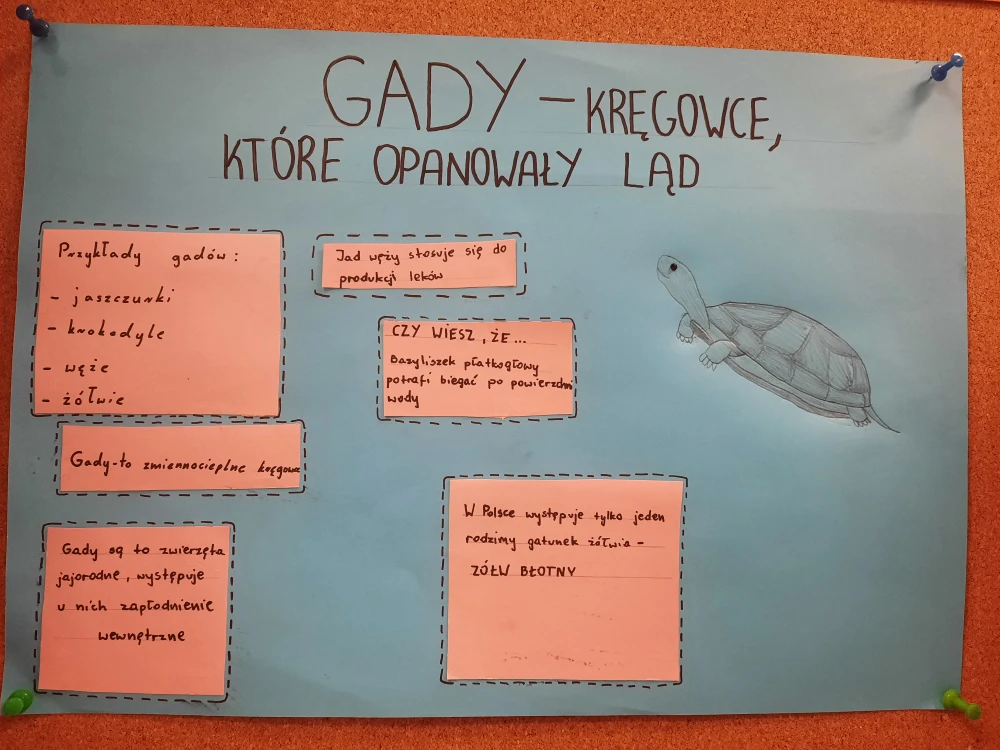 GADY – KRĘGOWCE,
KTÓRE OPANOWAŁY LĄD
Przykłady gadów:
- jaszczurki
- krokodyle
- węże
- żółwie
Gady-to zmiennocieplne kręgowce
Gady są to zwierzęta
jajorodne, występuje
u nich zapłodnienie
wewnętrzne
Jad węży stosuje się do
produkcji leków
CZY WIESZ, ŻE...
Bazyliszek płatkogłowy
potrafi biegać po powierzchni
wody
W Polsce występuje tylko jeden
rodzimy gatunek żółwia -
ŻÓŁW BŁOTNY